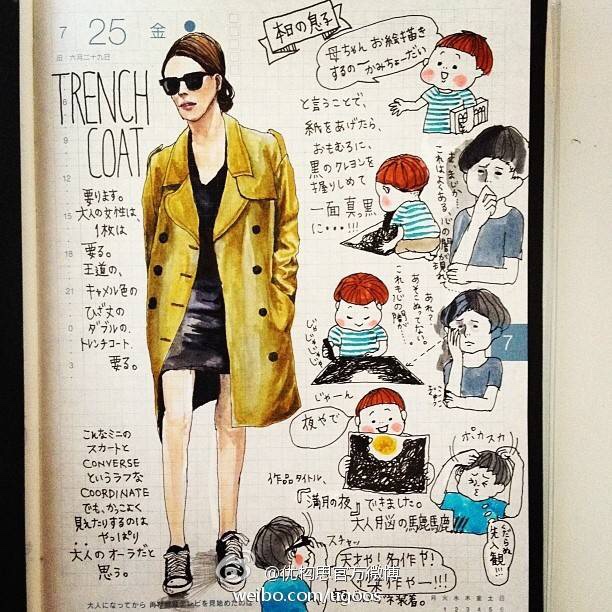 7
25
金
旧 六月二十九日
TRENCH
COAT
要ります。
大人の女性は、
1枚は
要る。
王道の、
キャメル色の
ひざ丈の
ダブルの、
トレンチコート。
要る。
こんなミニの
スカートと
CONVERSE
というラフな
COORDINATE
でも、かっこよく
見えたりするのは
やっぱり
大人のオーラだと
思う。
本日の息子
母ちゃん お絵描き
するの かみちょーだい
と言うことで、
紙をあげたら、
おもむろに、
黒のクレヨンを
握りしめて
一面 真っ黒
に…!!!
ま、まじか…
これはよくある、心の闇が現れ
じゅじゅじゅじゅ
あれ?
あそこぬってない。
これも心の闇が…
7
じゃーん
夜やで
作品タイトル、
『満月の夜』できました。
大人月脳の馬鹿馬鹿!!!
ポカスカ
くだらぬ
先入観!!!
スチャッ
天才や!名作や!
作やー!!!
@优构思官方微博
weibo.com/ugoos
大人になってから
月 火 水 木 金 土 日